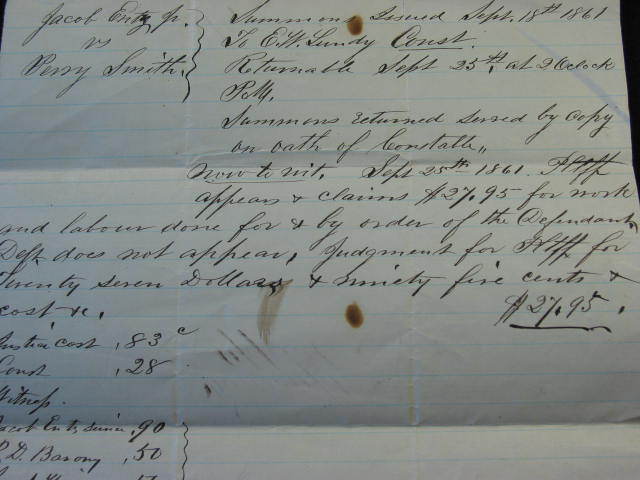 Jacob Entz Jr.
vs
Perry Smith.
Summons Issued Sept. 18th 1861
To E.W. Lundy Const.
Returnable Sept 25th, at 2 Oclock
P.M.
Summons returned served by copy
on oath of Constable,,
Now to wit. Sept 25th 1861. Pltff
appears & claims $27.95 for work
and labour done for & by order of the Defendant,
Deft does not appear, Judgment for Pltff for
Twenty seven Dollars & ninety five cents &
cost &c. $27.95.
Justice cost ,83 c
Const ,28
Witness.
Jacob Entz senior ,90
D. Barony ,50